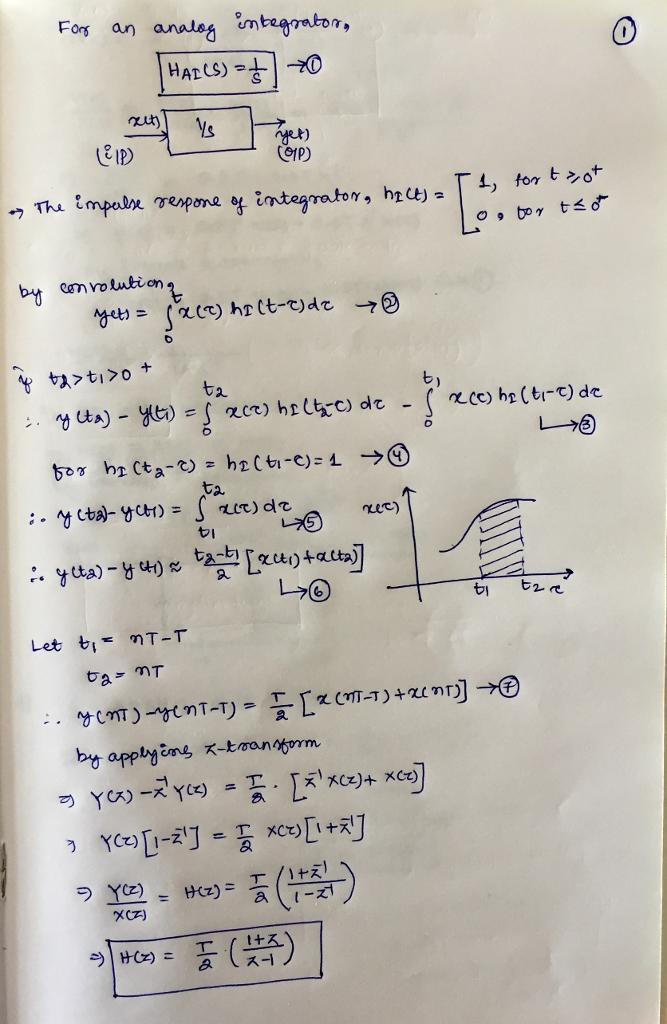 For an analog integrator,
①
H_AI(s) = 1/s → ①
x(t) 1/s y(t)
(i/p) (o/p)
→ The impulse respone of integrator, h_I(t) = [ 1, for t ≥ 0⁺
0, for t ≤ 0⁻
by convolution,
y(t) = ∫₀ᵗ x(τ) h_I(t-τ)dτ → ②
if t₂>t₁>0⁺
∴ y(t₂) - y(t₁) = ∫₀^t₂ x(τ) h_I(t₂-τ) dτ - ∫₀^t₁ x(τ) h_I(t₁-τ) dτ
↳ ③
for h_I(t₂-τ) = h_I(t₁-τ) = 1 → ④
∴ y(t₂)-y(t₁) = ∫_t₁^t₂ x(τ) dτ ↳ ⑤
x(τ)
∴ y(t₂)-y(t₁) ≈ (t₂-t₁)/2 [x(t₁)+x(t₂)]
↳ ⑥
t₁ t₂ τ
Let t₁ = nT-T
t₂ = nT
∴ y(nT)-y(nT-T) = T/2 [x(nT-T)+x(nT)] → ⑦
by applying z-transform
⇒ Y(z) - z⁻¹ Y(z) = T/2 . [z⁻¹ X(z) + X(z)]
⇒ Y(z) [1-z⁻¹] = T/2 X(z) [1+z⁻¹]
⇒ Y(z)/X(z) = H(z) = T/2 (1+z⁻¹/1-z⁻¹)
⇒ H(z) = T/2 (1+z/z-1)